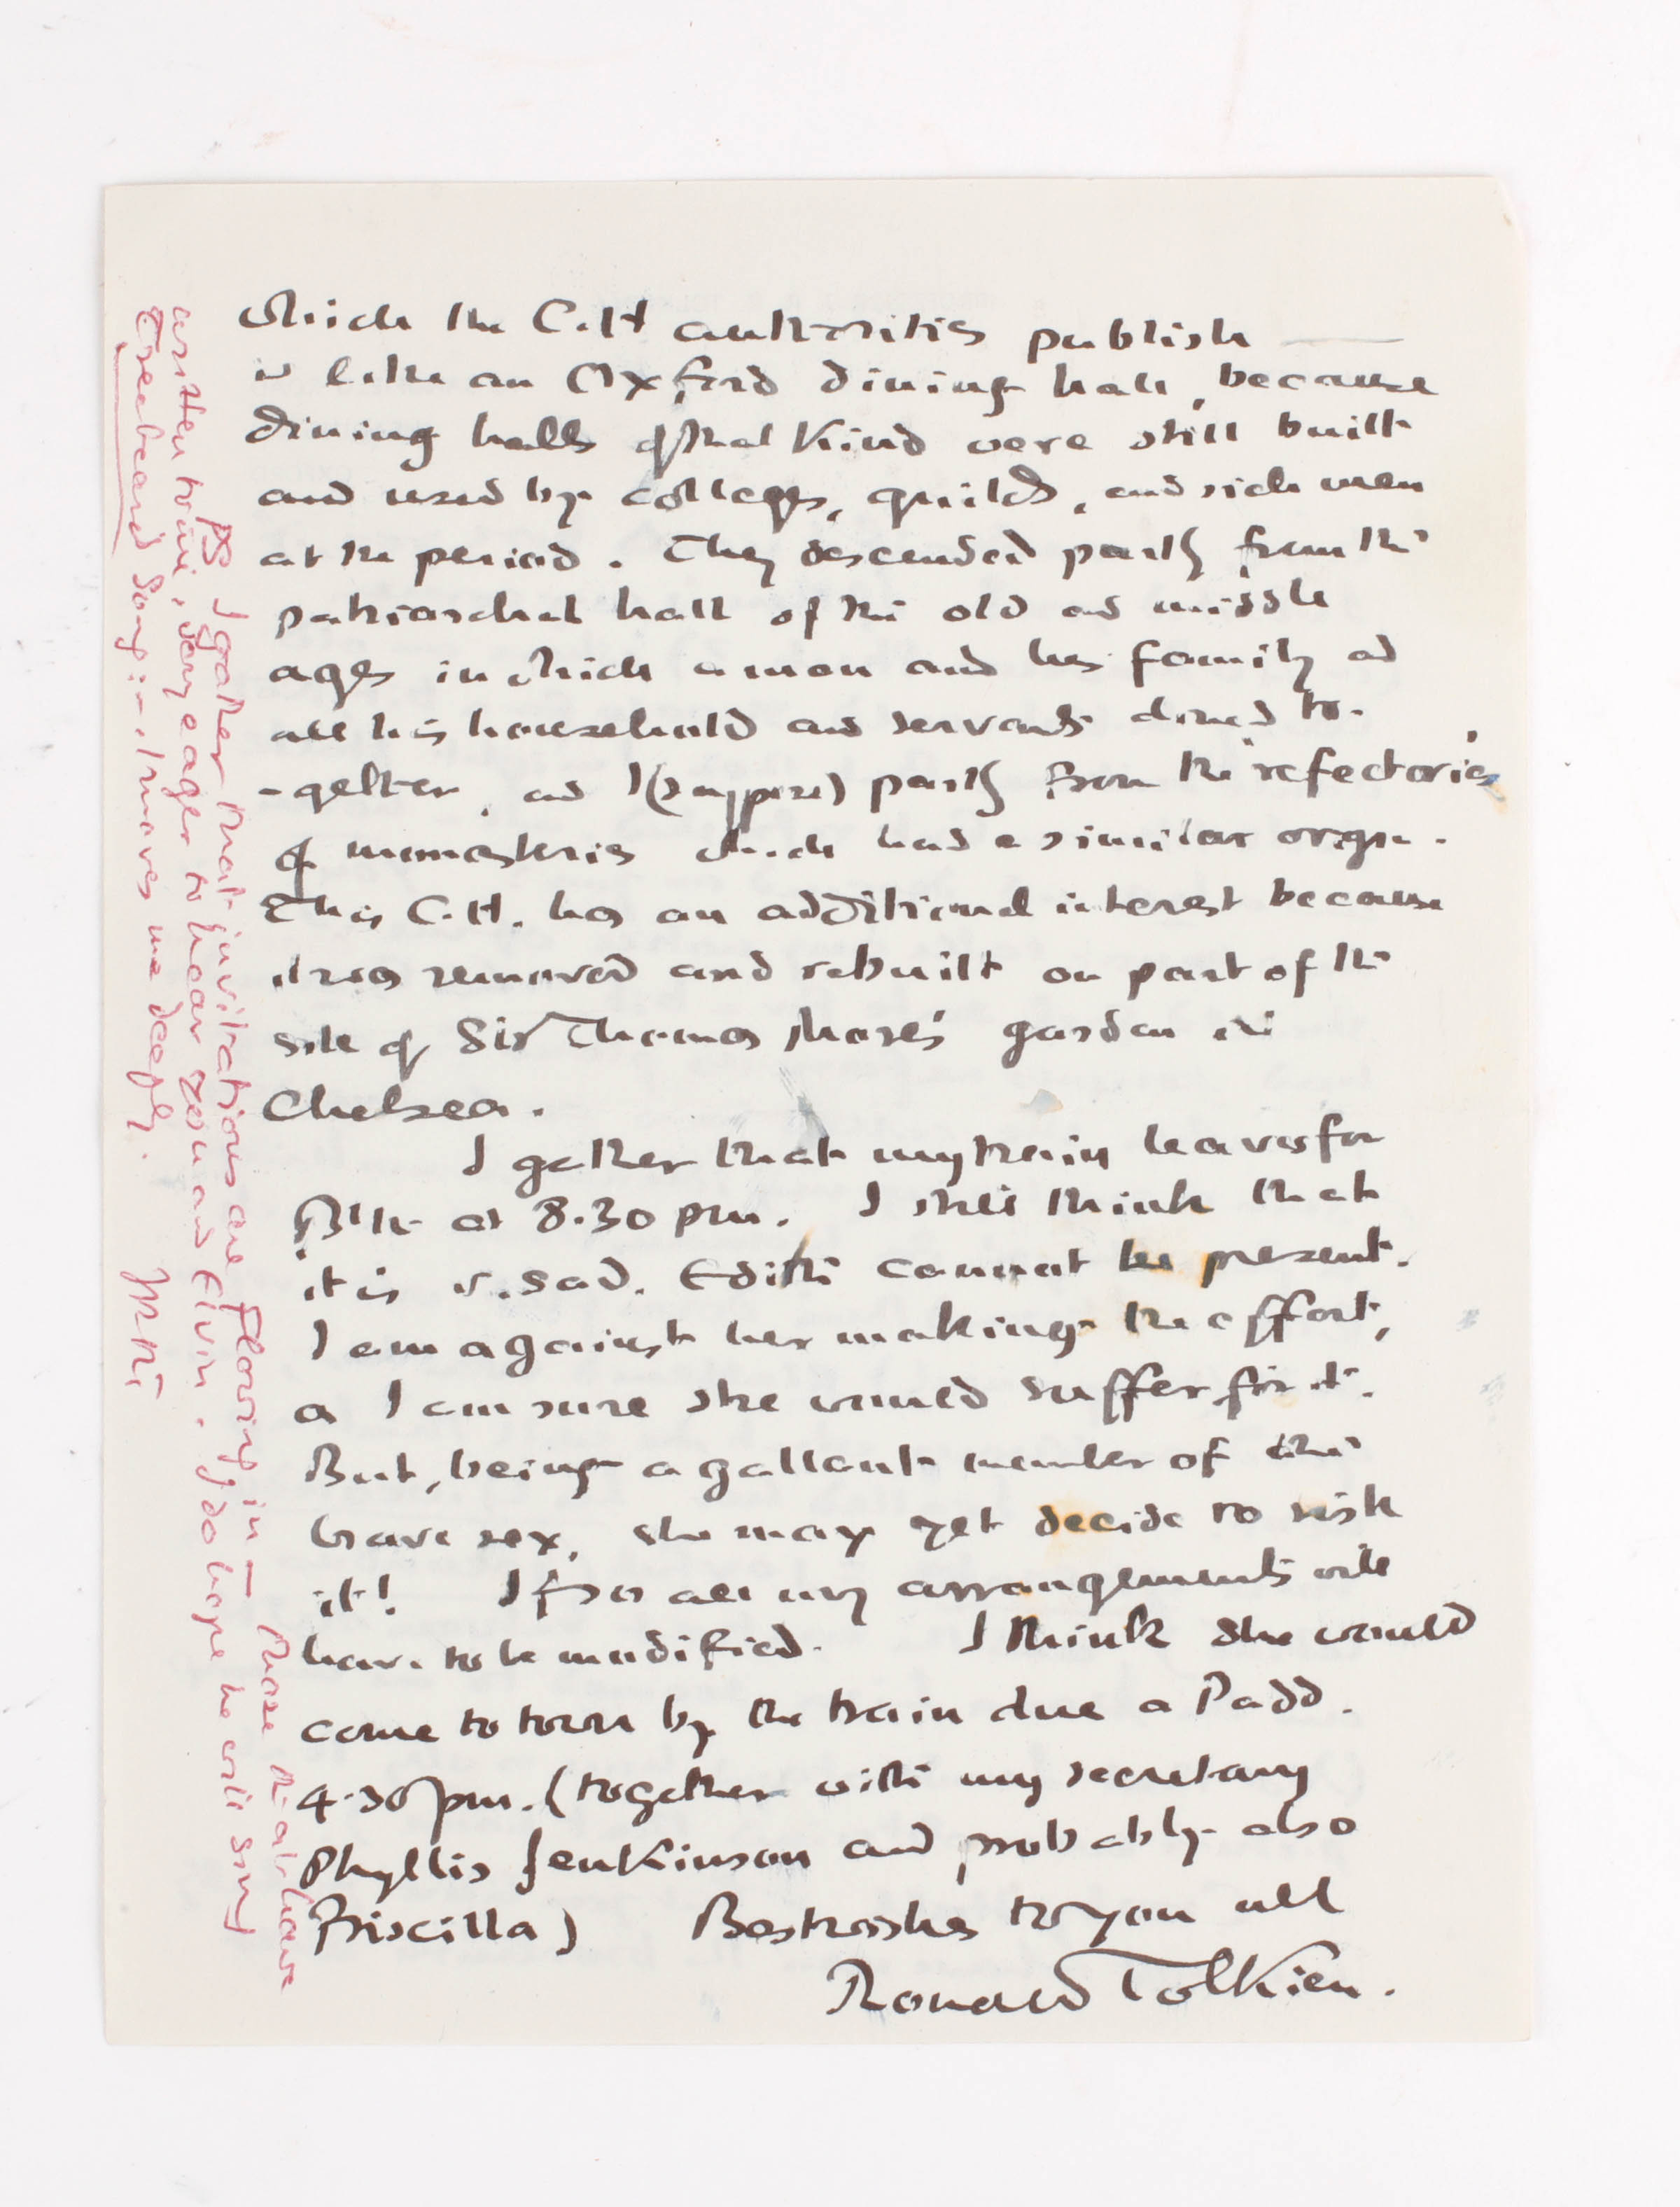 which the C.H authorities publish —
is like an Oxford dining hall, because
dining halls of that kind were still built
and used by colleges, guilds, and rich men
at the period. They descended partly from the
patriarchal hall of the old and middle
ages in which a man and his family and
all his household and servants dined to-
-gether, and I (suppose) partly from the refectories
of monasteries which had a similar origin.
This C.H. has an additional interest because
it was removed and rebuilt on part of the
site of Sir Thomas More's garden in
Chelsea.
I gather that my train leaves for
B'th at 8.30 pm. I still think that
it is v. sad. Edith cannot be present.
I am against her making the effort,
as I am sure she would suffer for it.
But, being a gallant member of the
brave sex, she may yet decide to risk
it! If so all my arrangements will
have to be modified. I think she would
come to town by the train due at Padd.
4.30 pm. (together with my secretary
Phyllis Jenkinson and probably also
Priscilla) Best wishes to you all
Ronald Tolkien.
PS I gather that invitations are flowing in — those that have
written to me, very eager to hear you and Elvin. I do hope he will sing
Treebeard's song: it moves me deeply. JRRT